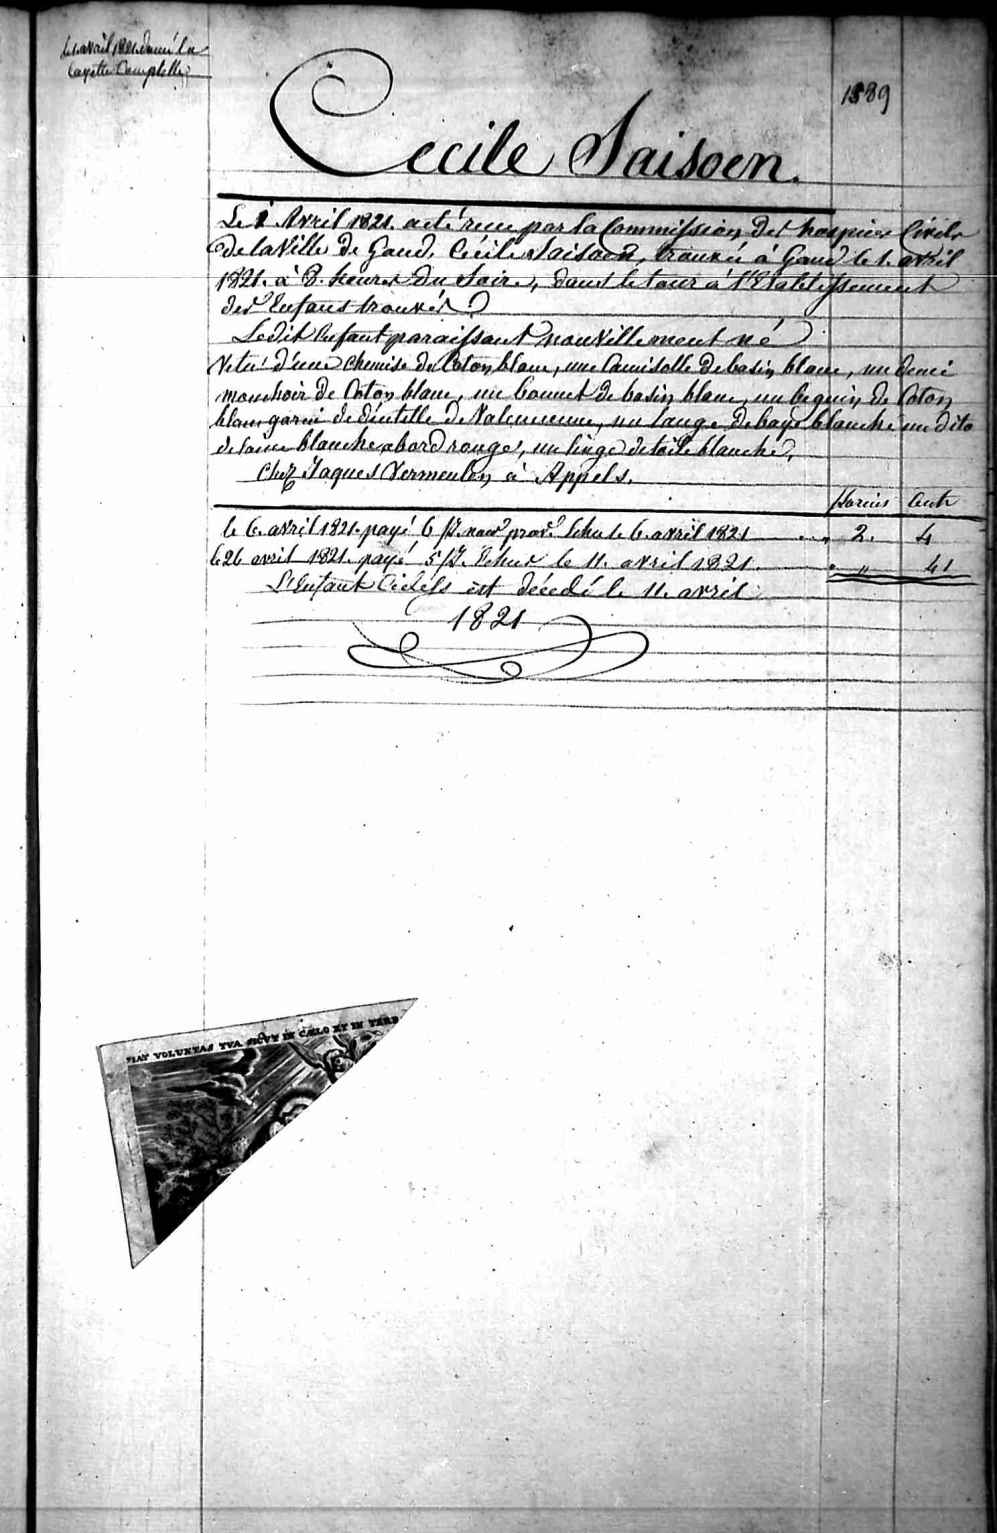 le 1. avril 1821. donné la
layette Complette
1889
Cecile Saisoen.
Le 1 Avril 1821. a eté recue par la Commission des hospices Civils
De la Ville de Gand, Cécile Saisoen, trouvée à Gand le 1. avril
1821. à 8. heures Du Soir, dans le tour à l'Etablissement
des Enfans trouvés
Ledit Enfant paraissant nouvellement né
Vetu d'une chemise de Coton blanc, une Camisolle De basin blanc, un demi
mouchoir de Coton blanc, un bonnet de basin blanc, un beguin de Coton
blanc garni de dentelle de Valencienne, un lange De baye blanche un dito
de laine blanche abord rouge, un linge de toile blanche,
Chez Jaques Vermeulen à Appels.
florins Cents
le 6. avril 1821. payé 6 le 6. avril 1821 2. 4
le 26 avril 1821. payé 5 le 11. avril 1821. " 41
L'Enfant est décédé le 11. avril
1821
FIAT VOLUNTAS TVA SICVT IN CÆLO ET IN TERR